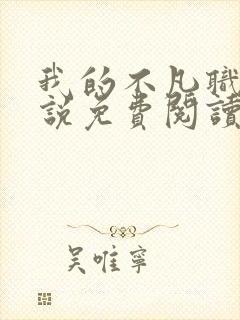 我的不凡職
說免費閱讀
吴唯寧